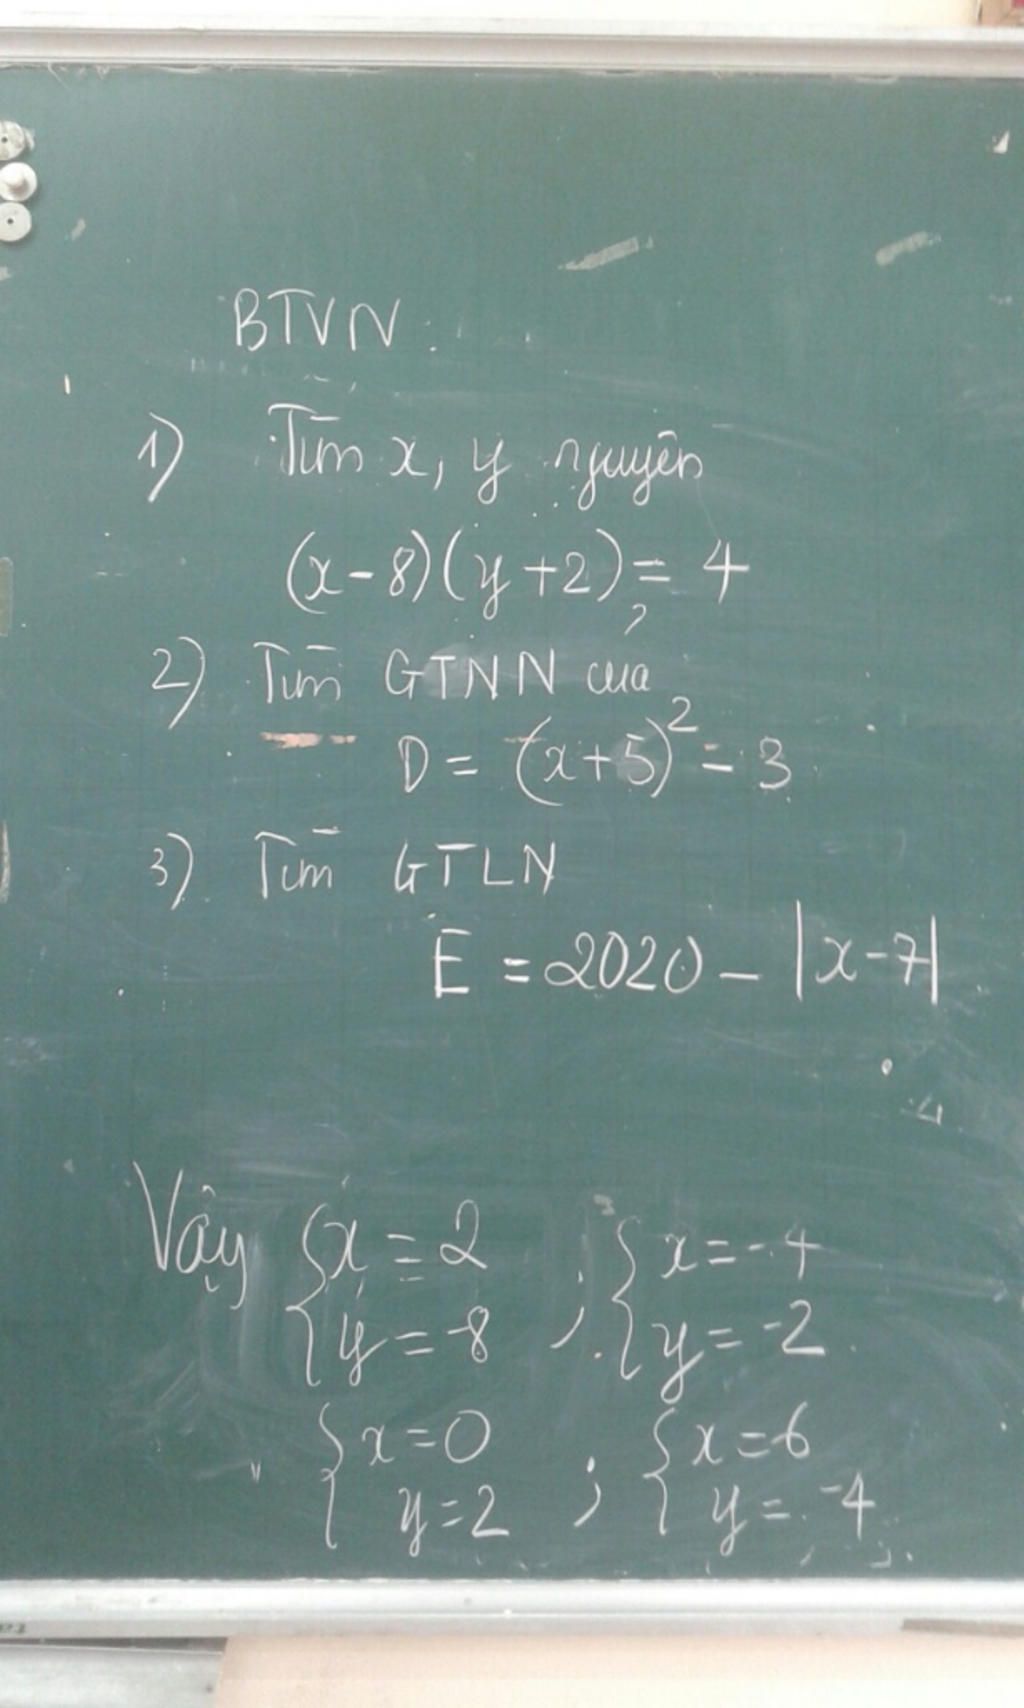 BTVN:
1) Tìm x, y nguyên
(x-8)(y+2) = 4
2) Tìm GTNN của
D = (x+5)² = 3
3) Tìm GTLN
E = 2020 - |x-7|
Vậy { x = 2 ; { x = -4
{ y = -8 { y = -2
{ x = 0 ; { x = -6
{ y = 2 { y = -4